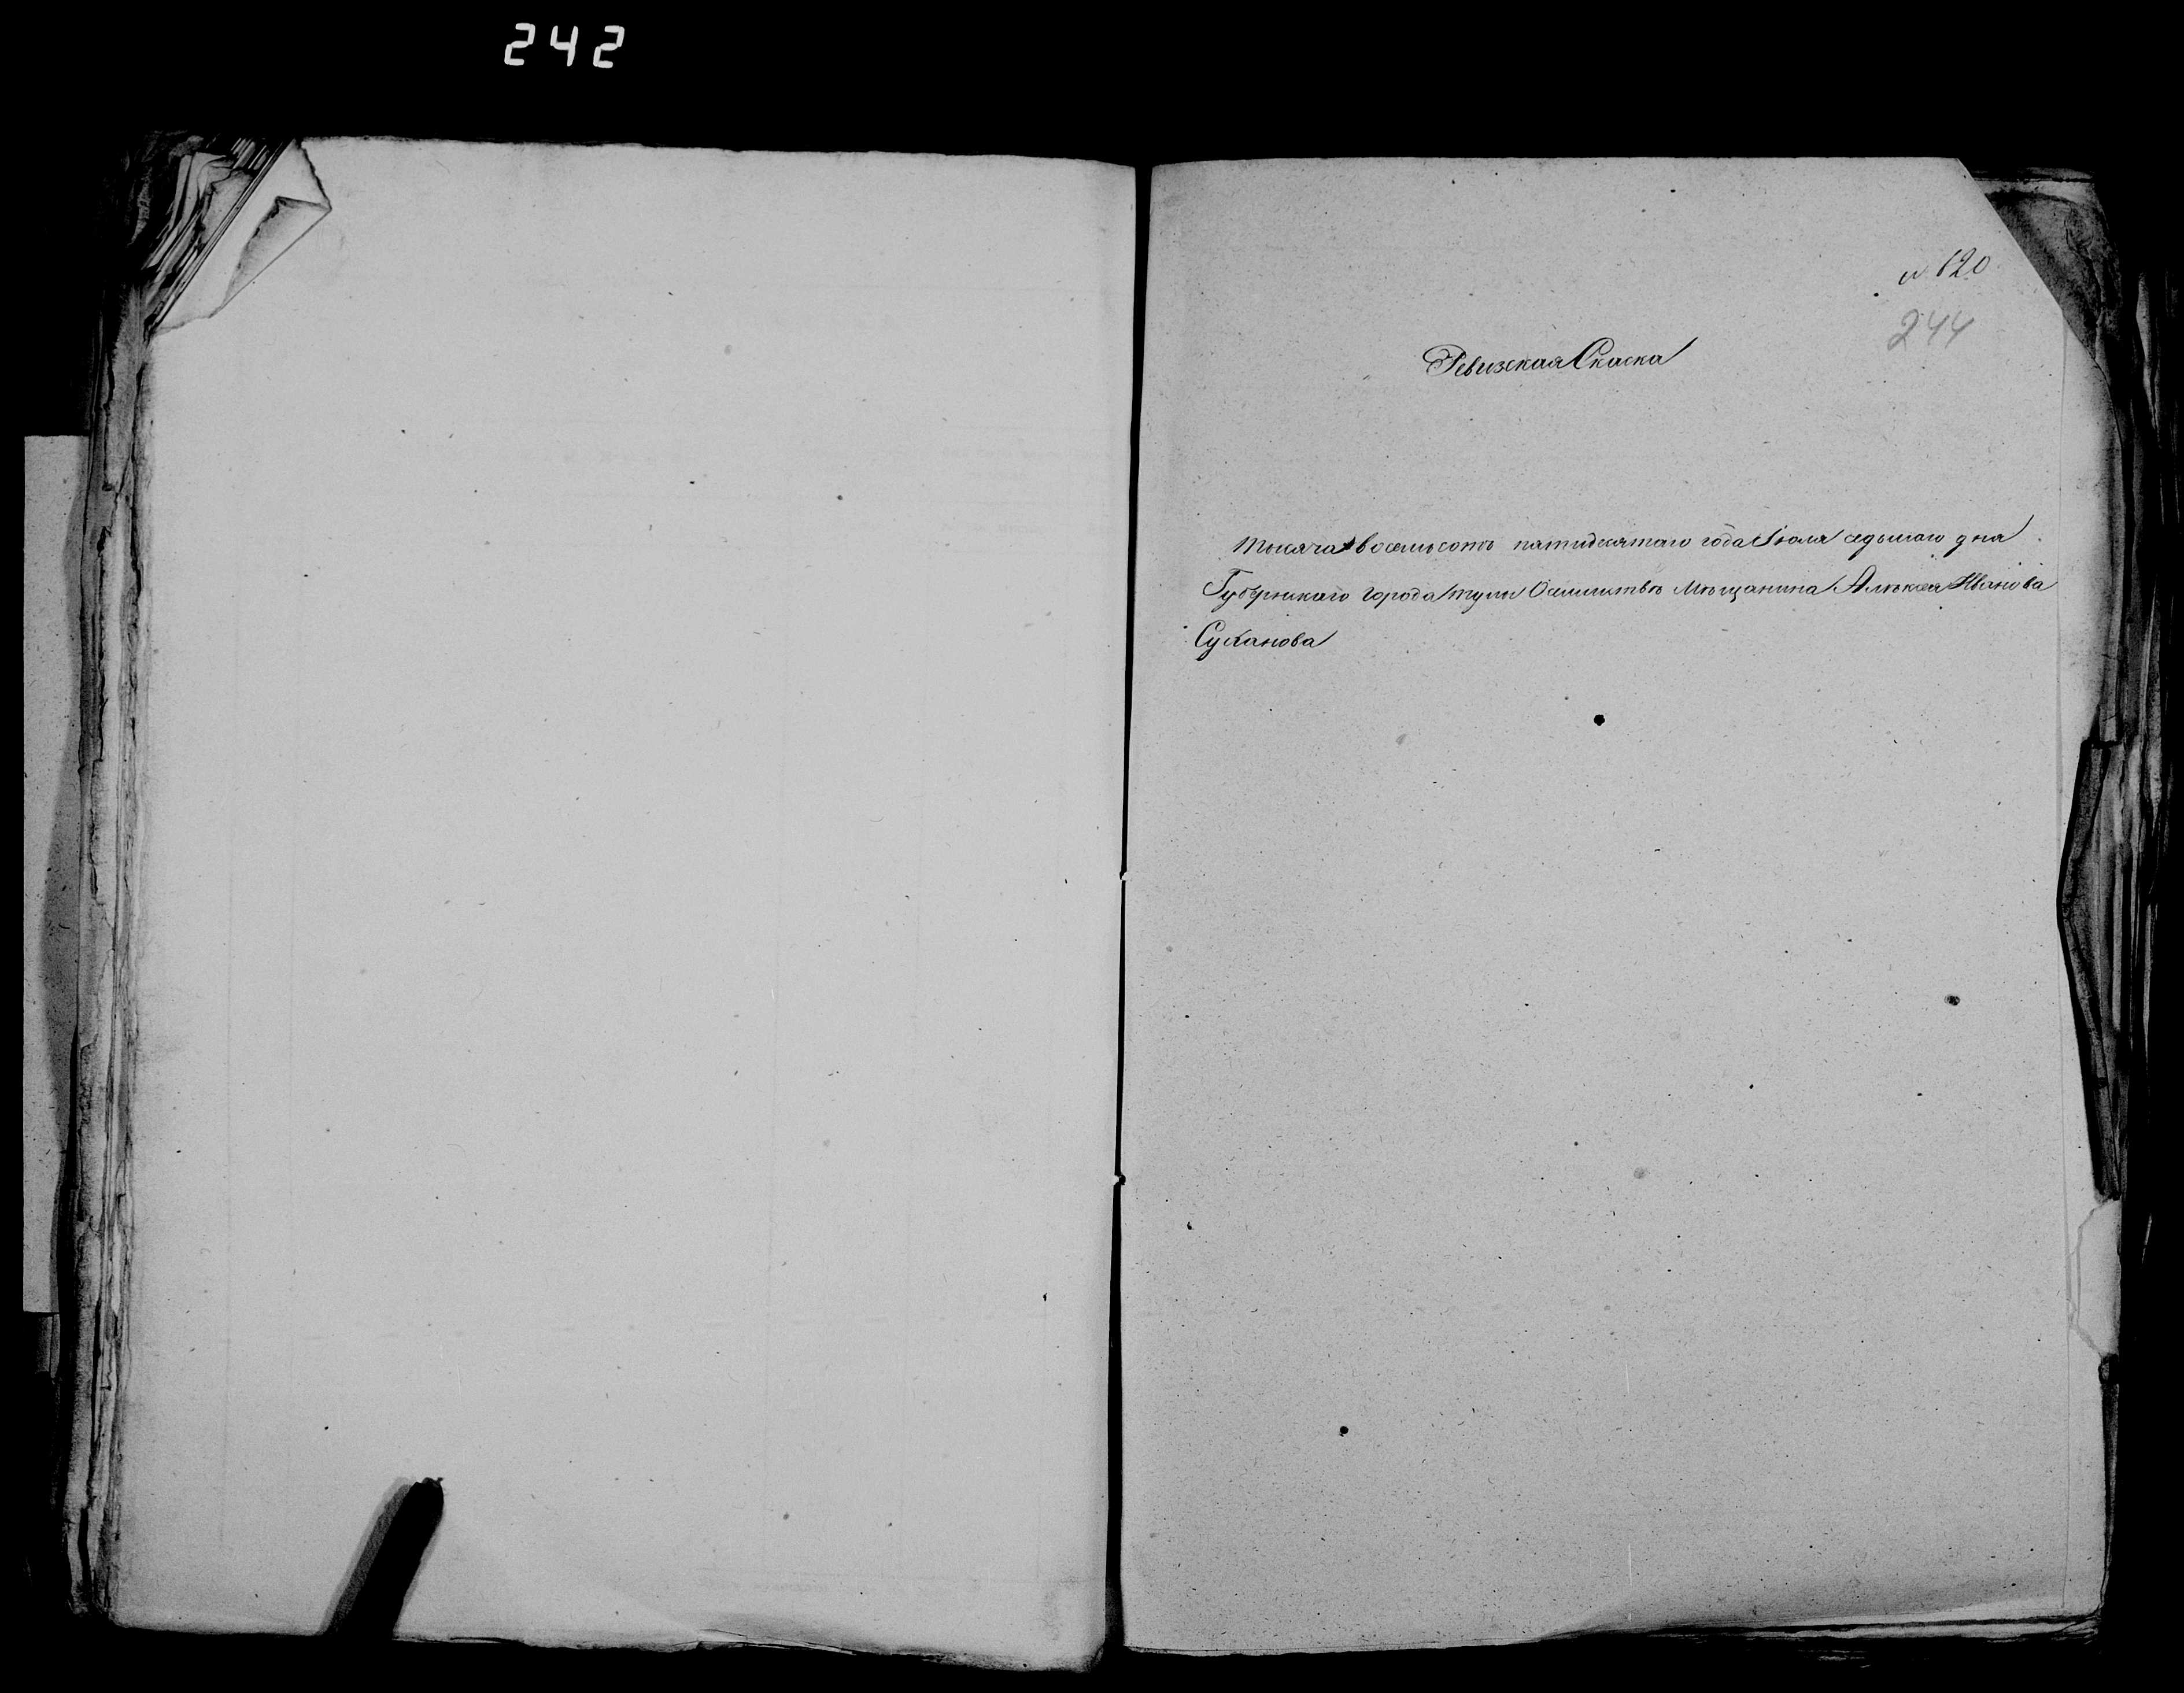 242
№ 120
244
Ревизская Скаска
Тысяча восемьсотъ пятидесятаго года Іюля седьмаго дня
Губернскаго города тулы О семействѣ Мѣщанина Алѣксея Иванова
Суханова